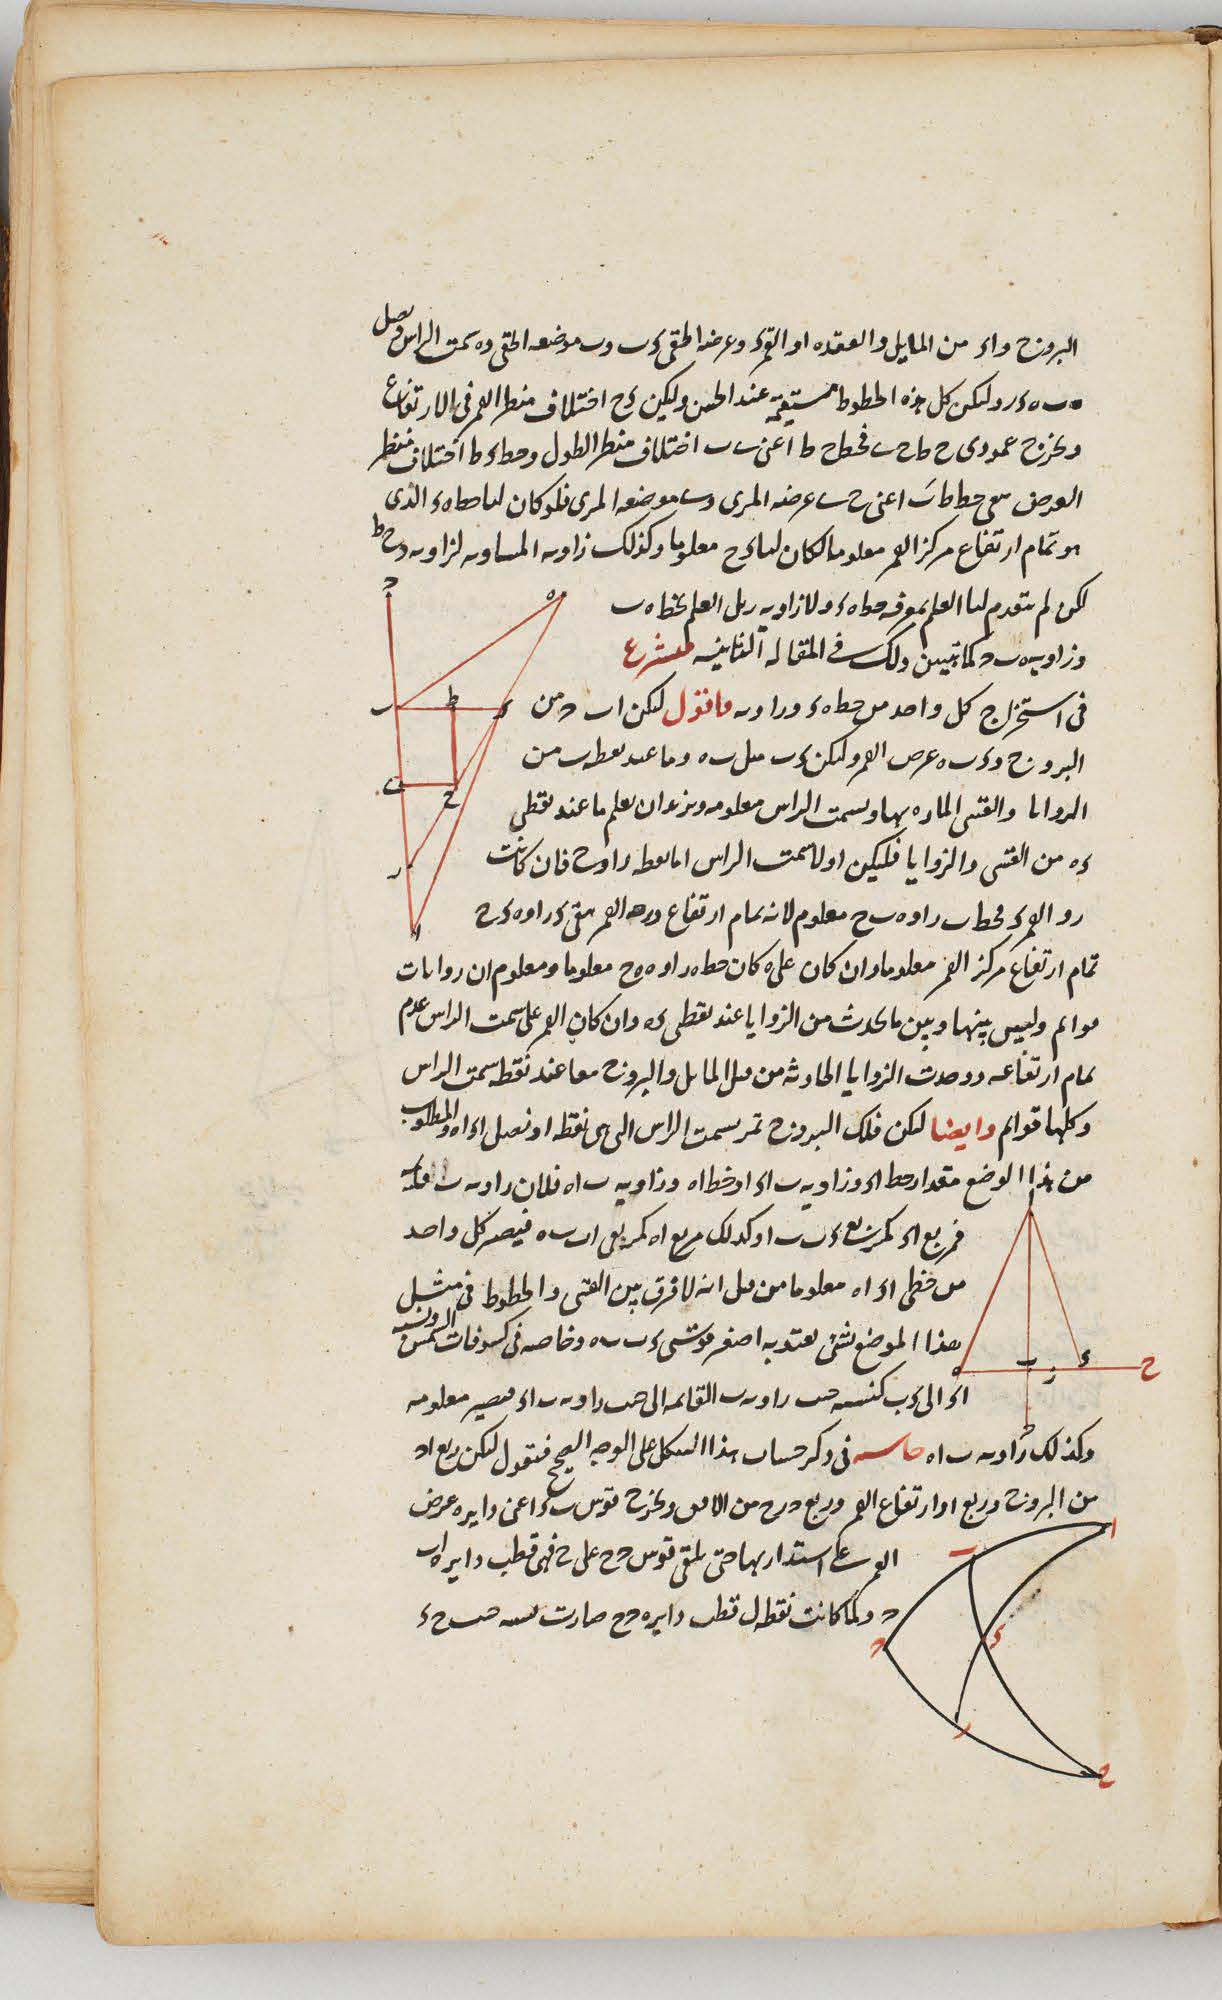 البروج و اء من المايل والعقده او القمر ء وعرضه الحقى ء ب و ب موضعه الحقى و ه سمت الراس ونصل
ه ب ه ء ر وليكن كل هذه الخطوط مستقيمه عند الحس وليكن ء ح اختلاف منظر القمر فى الارتفاع
ونخرج عمودى ح ط ح ى فخط ح ط اعنى ى ب اختلاف منظر الطول وخط ء ط اختلاف منظر
العرض بقى خط ط ب اعنى ح ى عرضه المرى و ى موضعه المرى فلو كان لنا خط ه ء الذى
هو تمام ارتفاع مركز القمر معلوما لكان لنا ء ح معلوما وكذلك زاويه المساويه لزاويه ء ح ط
لكن لم يتقدم لنا العلم بمعرفه خط ه ء ولا زاويه بل العلم بخط ه ب
وزاويه ه ب د كما تبين ذلك فى المقاله الثانيه فلنشرع
فى استخراج كل واحد من خط ه ء وزاويه فاقول ليكن ا ب د من
البروج و ء ب ه عرض القمر وليكن ء ب مثل ب ه وما عند نقطه ب من
الزوايا والقسى الماره بها وبسمت الراس معلومه ونريد ان نعلم ما عند نقطى
ء ه من القسى والزوايا فليكن اولا سمت الراس اما نقطه ر او ح فان كانت
ر و القمر ء فخط ب ر او ه ب ح معلوم لانه تمام ارتفاع درجه القمر بقى ء ر او ه ء ح
تمام ارتفاع مركز القمر معلوما وان كان على ه كان خط ه ر او ه ح معلوما ومعلوم ان زوايا ب
قوايم وليس بينها وبين ما يحدث من الزوايا عند نقطى ء ه وان كان القمر على سمت الراس عدم
تمام ارتفاعه ووجدت الزوايا الحادثه من ميل المايل والبروج معا عند نقطه سمت الراس
وكلها قوايم وايضا ليكن فلك البروج تمر بسمت الراس التى هى نقطه ا ونصل ا ء ا ه والمطلوب
من هذا الوضع مقدار خط ا ء وزاويه ب ا ء او خط ا ه وزاويه ب ا ه فلان زاويه ب قايمه
فمربع ا ء كمربعى ء ب ب ا وكذلك مربع ا ه كمربعى ا ب ب ه فيصير كل واحد
من خطى ا ء ا ه معلوما من قبل انه لا فرق بين القسى والخطوط فى مثل
هذا الموضع بشئ يعتد به لصغر قوسى ء ب ب ه وخاصه فى كسوفات الشمس ونسبه
ا ء الى ء ب كنسبه جيب زاويه ب القايمه الى جيب زاويه ب ا ء فيصير معلومه
وكذلك زاويه ب ا ه حاسه فى ذكر حساب هذا الشكل على الوجه الصحيح فنقول ليكن ربع ا د
من البروج وربع ا ر ارتفاع القمر وربع د ر ح من الافق ونخرج قوس ب ء اعنى دايره عرض
القمر على استدارتها حتى يلقى قوس د ح على ح فهى قطب دايره ا ب
د ولما كانت نقطه ا قطب دايره د ح صارت نسبه جيب ح ء